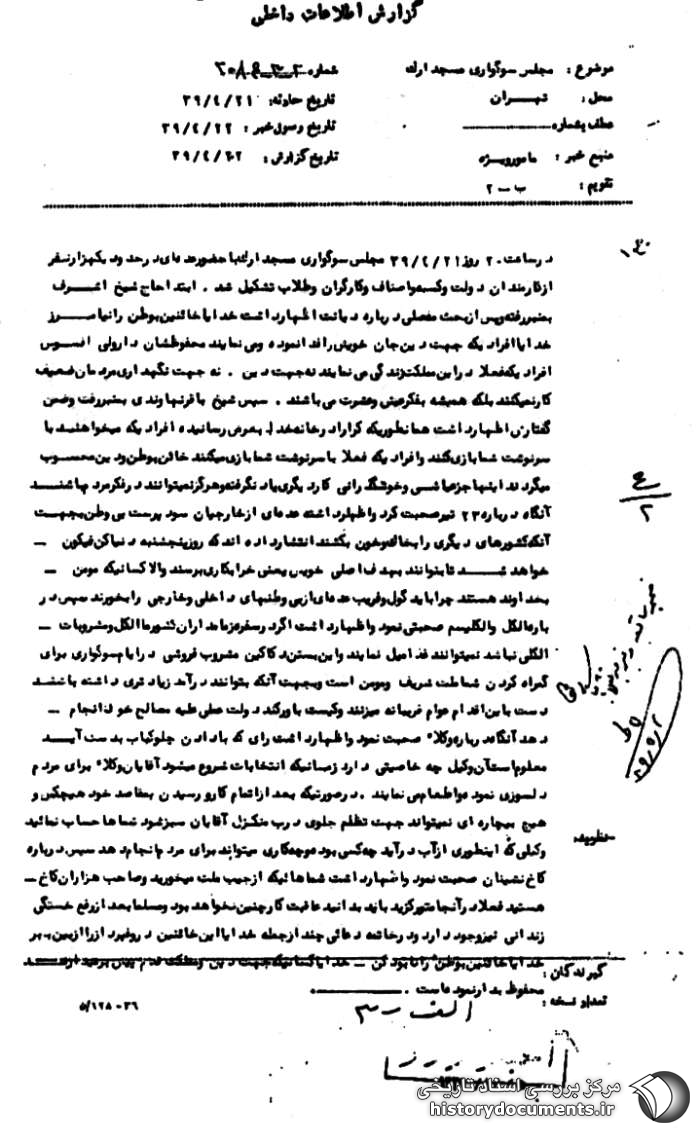 گزارش اطلاعات داخلی
موضوع : مجلس سوگواری مسجد ارك
شماره
محل : تهــران
تاریخ حادثه: ۳۹/۴/۲۱
عطف بشماره
تاریخ وصول خبر : ۳۹/۴/۲۲
منبع خبر : مامور ویــژه
تاریخ گزارش : ۳۹/۴/۲۲
تقویم : ب - ۲
درساعت ۲۰ روز ۳۹/۴/۲۱ مجلس سوگواری مسجد ارك با حضور عده ای در حدود یکهزار نفر
از کارمندان دولت وکسبه واصناف وکارگران وطلاب تشکیل شد . ابتدا حاج شیخ اشــرف
بمنبر رفته وپس از بحث مفصلی درباره دیانت اظهار داشت خدایا خائنین بوطن را نیامــرز
خدایا افرادیکه جهت دین جان خویش را فدا نموده ومی نمایند محفوظشان دار ولی افسوس
افرادیکه فعلا در این مملکت زندگی می نمایند نه جهت دین . نه جهت نگهداری مردمان ضعیف
کار نمیکنند بلکه همیشه بفکر عیش وعشرت می باشند . سپس شیخ باقر نهاوندی بمنبر رفت وضمن
گفتارش اظهار داشت همانطوریکه کرارا در خانه خدا بعرض رسانیده افرادیکه میخواهنــد با
سرنوشت شما بازی کنند وافرادیکه فعلا با سرنوشت شما بازی میکنند خائن بوطن ودین محســوب
میگردند اینها جز عیاشــی وخوشگذرانی کار دیگری یاد نگرفته وهرگز نمیتوانند در فکر مردم باشنــد
آنگاه درباره ۲۳ تیر صحبت کرد واظهار داشته عده ای از خارجیان سودپرست بی وطن بجهــت
آنکه کشورهای دیگری را بخاك وخون بکشند انتشار داده اند که روز پنجشنبه دنیا کن فیکون ــ
خواهد شــد تا بتوانند بهدف اصلی خویش یعنی خرابکاری برسند والا کسانیکه مومن ــ
بخداوند هستند چرا باید گول وفریب عده ای از بی وطنهای داخلی وخارجی را بخورند سپس در
باره الکل والکلیسم صحبتی نمود واظهار داشت اگر در سفره زمامداران کشور ما الکل ومشروبات ــ
الکلی نباشد نمیتوانند غذا میل نمایند واین بستن دکاکین مشروب فروشی در ایام سوگواری برای
گمراه کردن شما ملت شریف ومومن است وبجهت آنکه بتوانند درآمد زیادتری داشته باشنــد
دست باین اقدام عوام فریبانه میزنند وکیست باور کند دولت عملی علیه مصالح خود انجام ــ
دهد آنگاه درباره وکلاء صحبت نمود واظهار داشت رای که با دادن چلوکباب بدست آیــد
معلوم است آن وکیل چه خاصیتی دارد زمانیکه انتخابات شروع میشود آقایان وکلاء برای مردم
دلسوزی نموده واطعام می نمایند . درصورتیکه بعد از اتمام کار ورسیدن بمقاصد خود هیچکس و
هیچ بیچاره ای نمیتواند جهت تظلم جلوی درب منــزل آقایان سبز شود شماها حساب نمائید
وکیلی که اینطوری از آب درآید چه کسی بوده وچه کاری میتواند برای مردم انجام دهد سپس درباره
کاخ نشینان صحبت نمود واظهار داشت شماهائیکه از جیب ملت میخورید وصاحب هزاران کاخ ــ
هستید فعلا در آنجا متمرکزید باید بدانید عاقبت کار چنین نخواهد بود ومسلما بعد از رفع خستگی
زندانی نیز وجود دارد ودر خاتمه دعائی چند از جمله خدایا این خائنین دروغپرداز را از بین ببر
خدایا خائنین بوطن را نابود کن ــ خدایا کسانیکه جهت دین ومملکت قدم پیش
گیرندگان :
محفوظ بدار نموده است .
تعداد نسخه :
۵/۱۲۸-۳۶
الف - ۳
مرکز بررسی اسناد تاریخی
historydocuments.ir